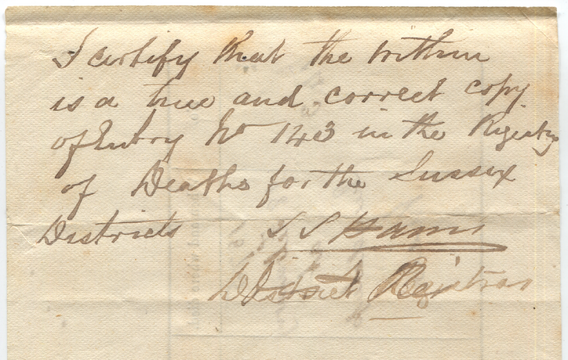 I certify that the within
is a true and correct copy
of Entry No 143 in the Registry
of Deaths for the Sussex
Districts S S Harris
District Registrar